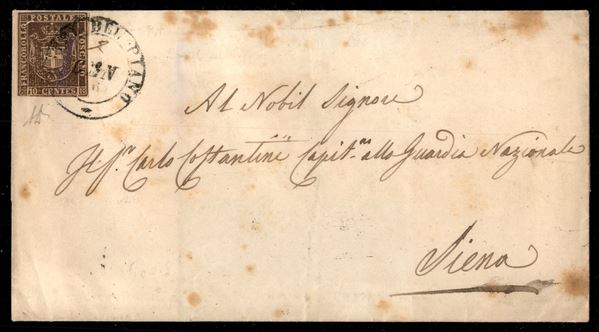 FRANCOBOLLO POSTALE TOSCANO
10 CENTES
DEL PIANO
Al Nobil Signore
Il Sr. Carlo Costantini Capit.no alla Guardia Nazionale
Siena